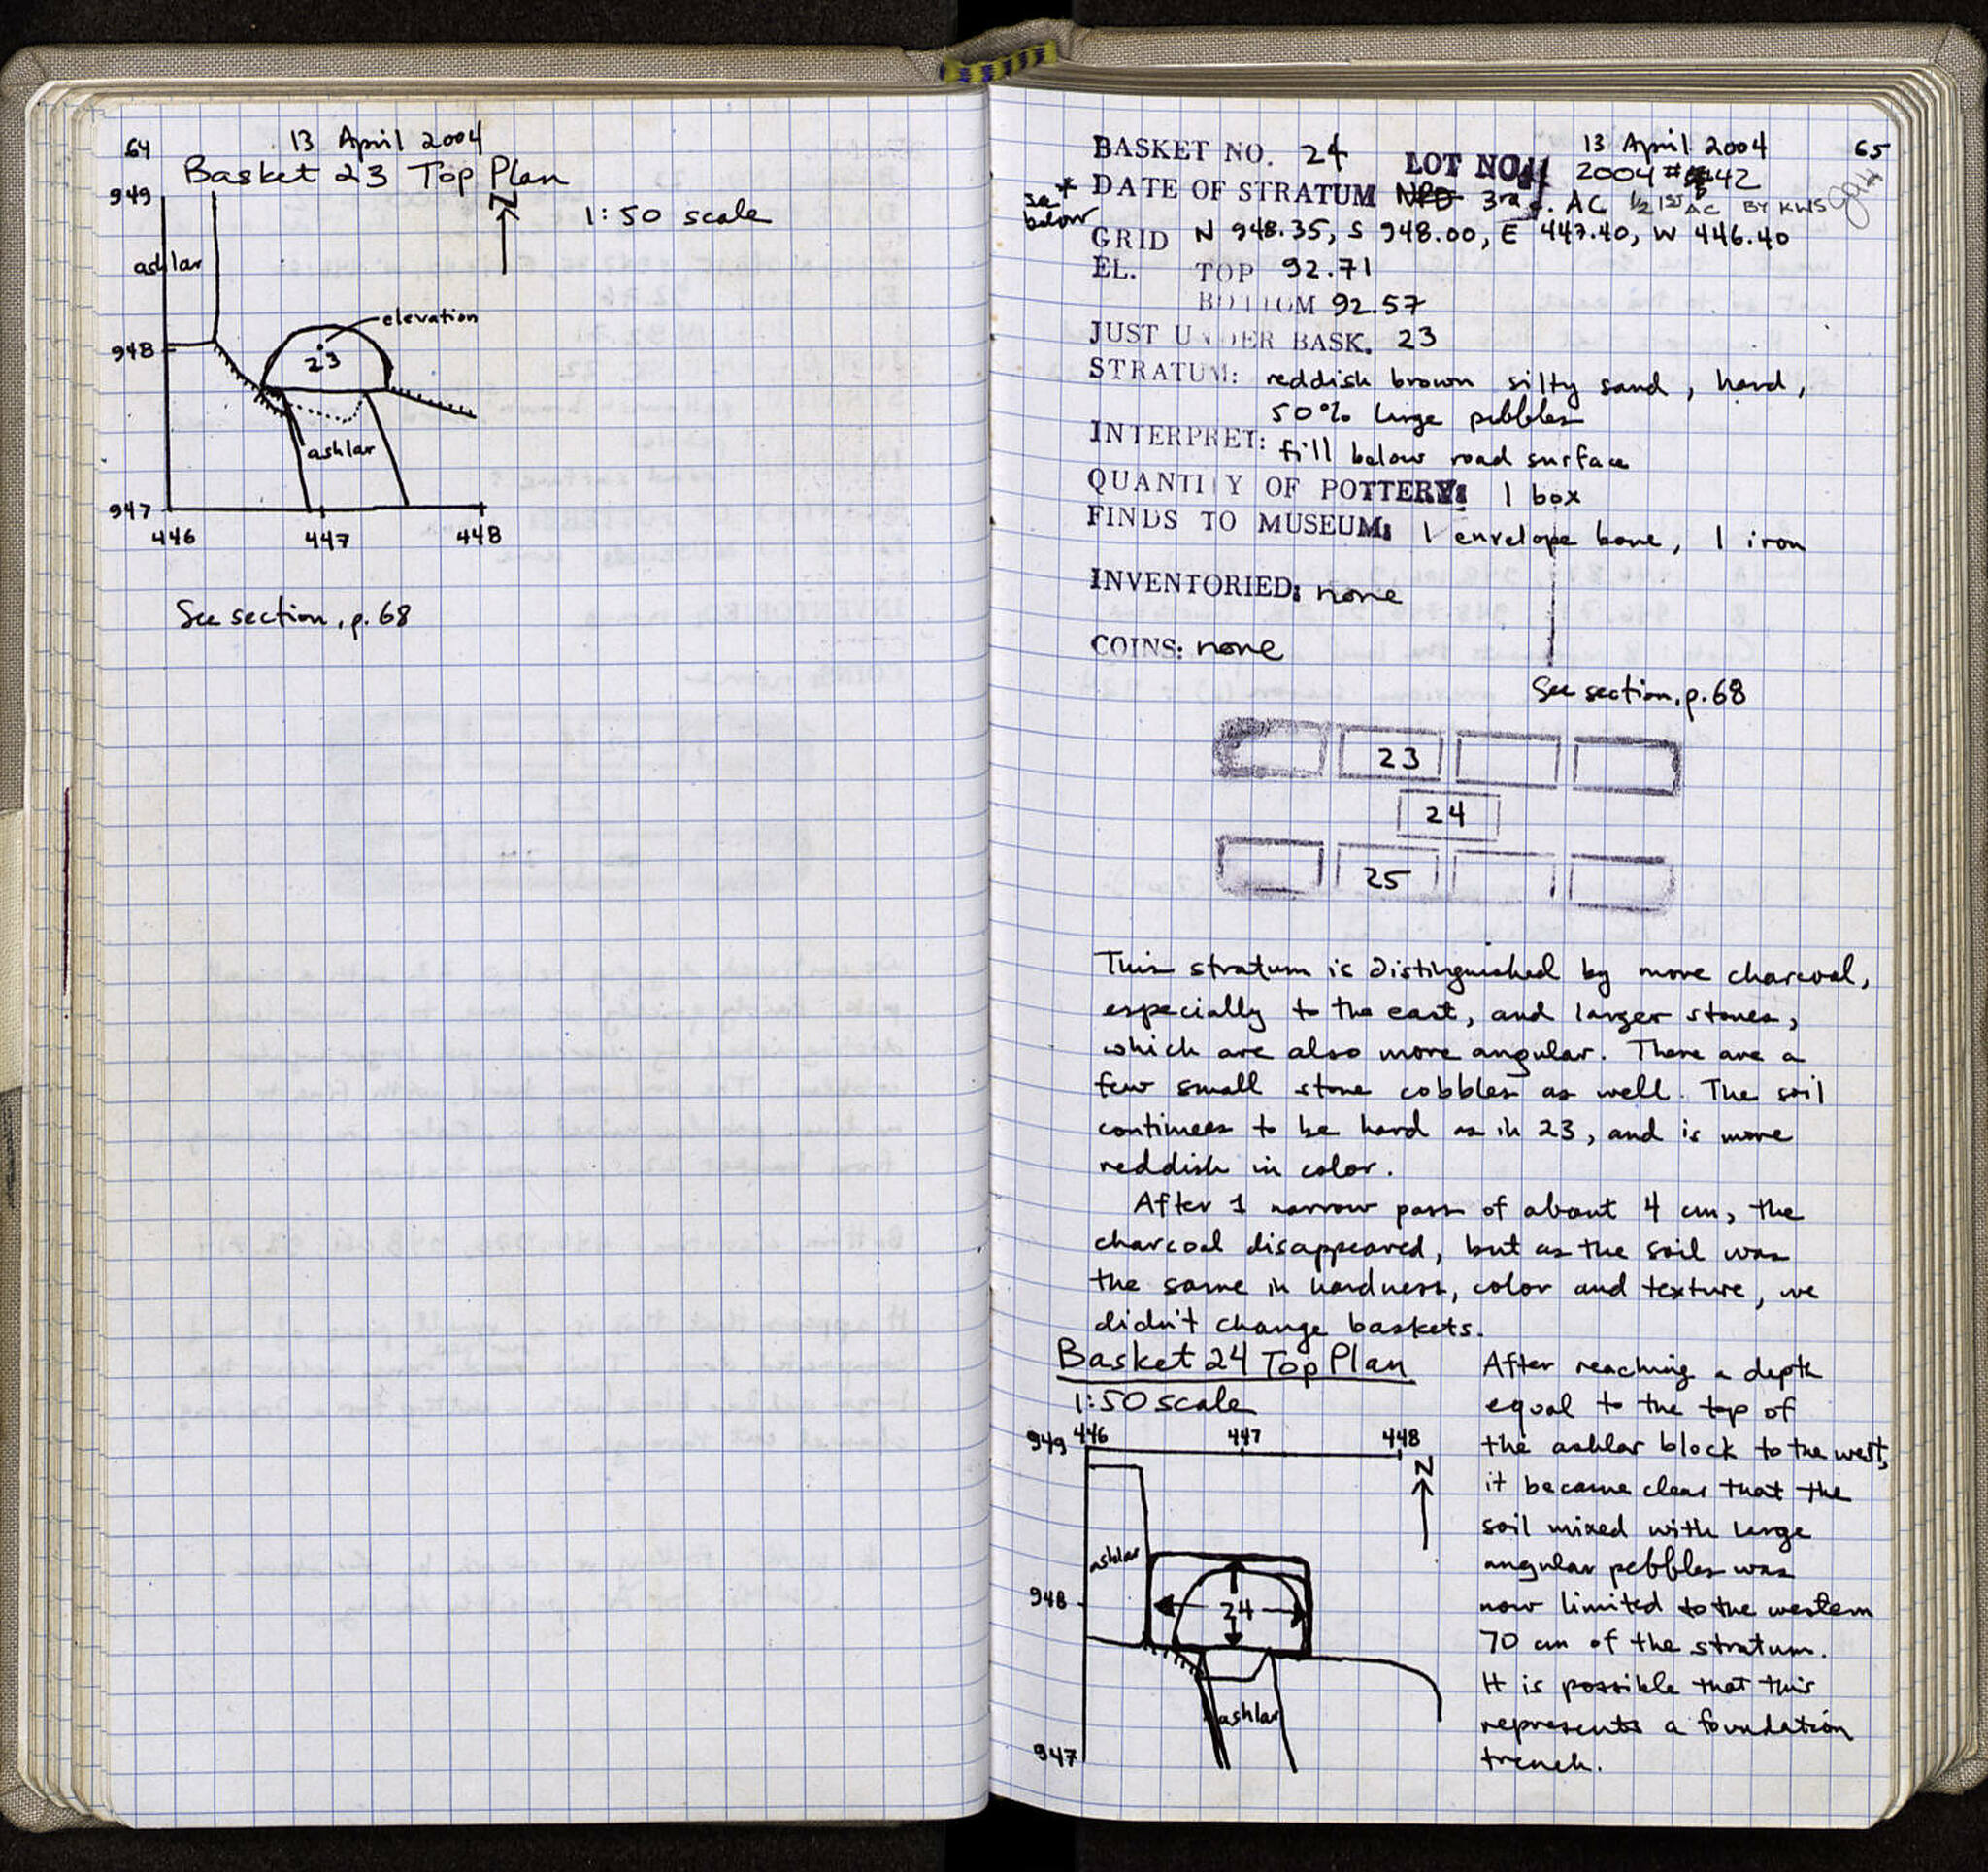 64
13 April 2004
Basket 23 Top Plan
949
N
1:50 scale
ashlar
elevation
948
23
ashlar
947
446
447
448
See section, p. 68
BASKET NO. 24
LOT NO.
13 April 2004
65
2004 # 42
* see below
DATE OF STRATUM NPD 3rd c. AC 1/2 1st AC BY KWS
GRID N 948.35, S 948.00, E 447.40, W 446.40
EL. TOP 92.71
BOTTOM 92.57
JUST UNDER BASK. 23
STRATUM: reddish brown silty sand, hard,
50% large pebbles
INTERPRET: fill below road surface
QUANTITY OF POTTERY: 1 box
FINDS TO MUSEUM: 1 envelope bone, 1 iron
INVENTORIED: none
COINS: none
See section, p. 68
23
24
25
This stratum is distinguished by more charcoal,
especially to the east, and larger stones,
which are also more angular. There are a
few small stone cobbles as well. The soil
continues to be hard as in 23, and is more
reddish in color.
After 1 narrow pass of about 4 cm, the
charcoal disappeared, but as the soil was
the same in hardness, color and texture, we
didn't change baskets.
Basket 24 Top Plan
1:50 scale
949
446
447
448
N
ashlar
948
24
ashlar
947
After reaching a depth
equal to the top of
the ashlar block to the west,
it became clear that the
soil mixed with large
angular pebbles was
now limited to the western
70 cm of the stratum.
It is possible that this
represents a foundation
trench.